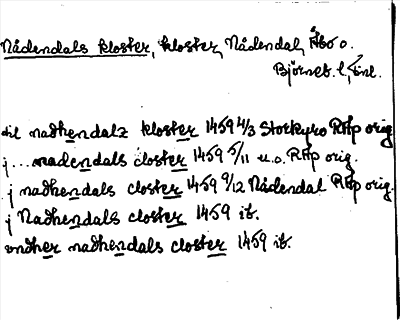 Nådendals kloster, kloster, Nådendal, Åbo o.
Björneb. l., Finl.
til nadhendalz kloster 1459 4/3 Storkyro RAp orig.
j ... nadendals closter 1459 5/11 u.o. RAp orig.
j nadhendals closter 1459 9/12 Nådendal RAp orig.
j Nadhendals closter 1459 ib.
vndher nadhendals closter 1459 ib.